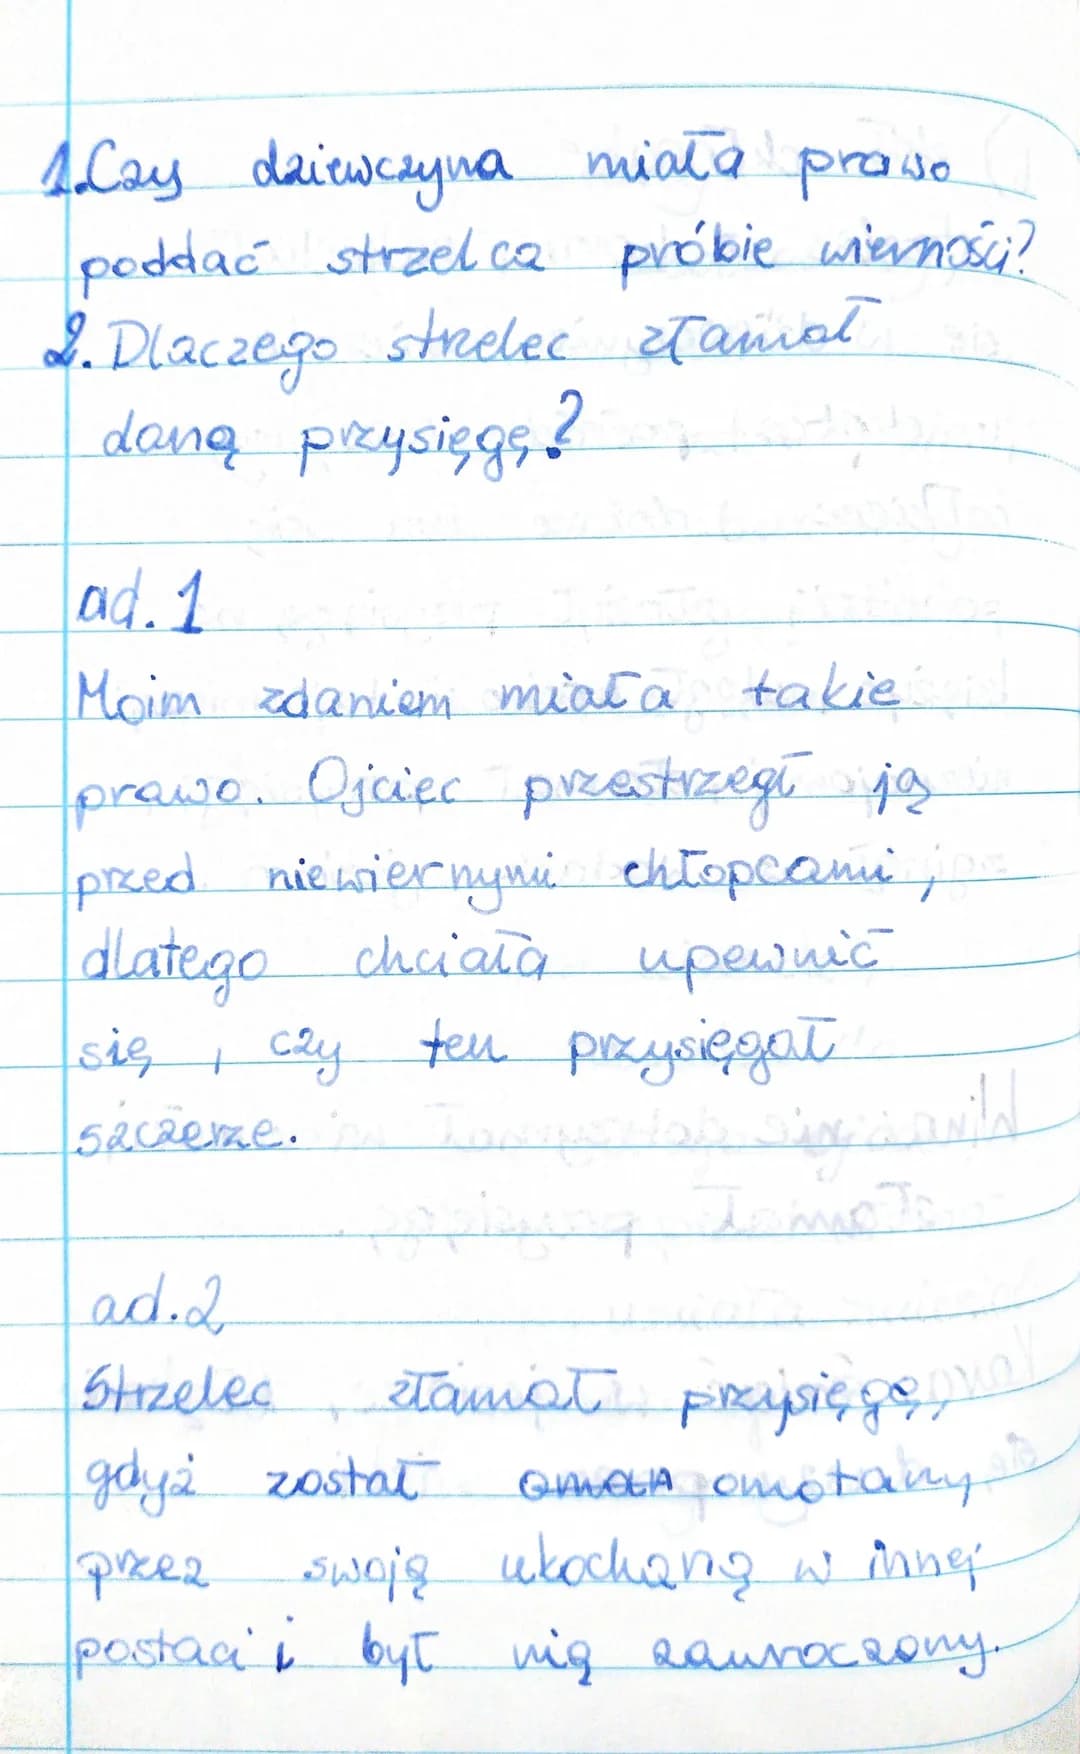 1. Czy dziewczyna miała prawo
poddać strzelca próbie wierności?
2. Dlaczego strzelec złamał
daną przysięgę?
ad. 1
Moim zdaniem miała takie
prawo. Ojciec przestrzegł ją
przed niewiernymi chłopcami,
dlatego chciała upewnić
się, czy ten przysięgał
szczerze.
ad. 2
Strzelec złamał przysięgę,
gdyż został omotany
przez swoją ukochaną w innej
postaci i był nią zauroczony.